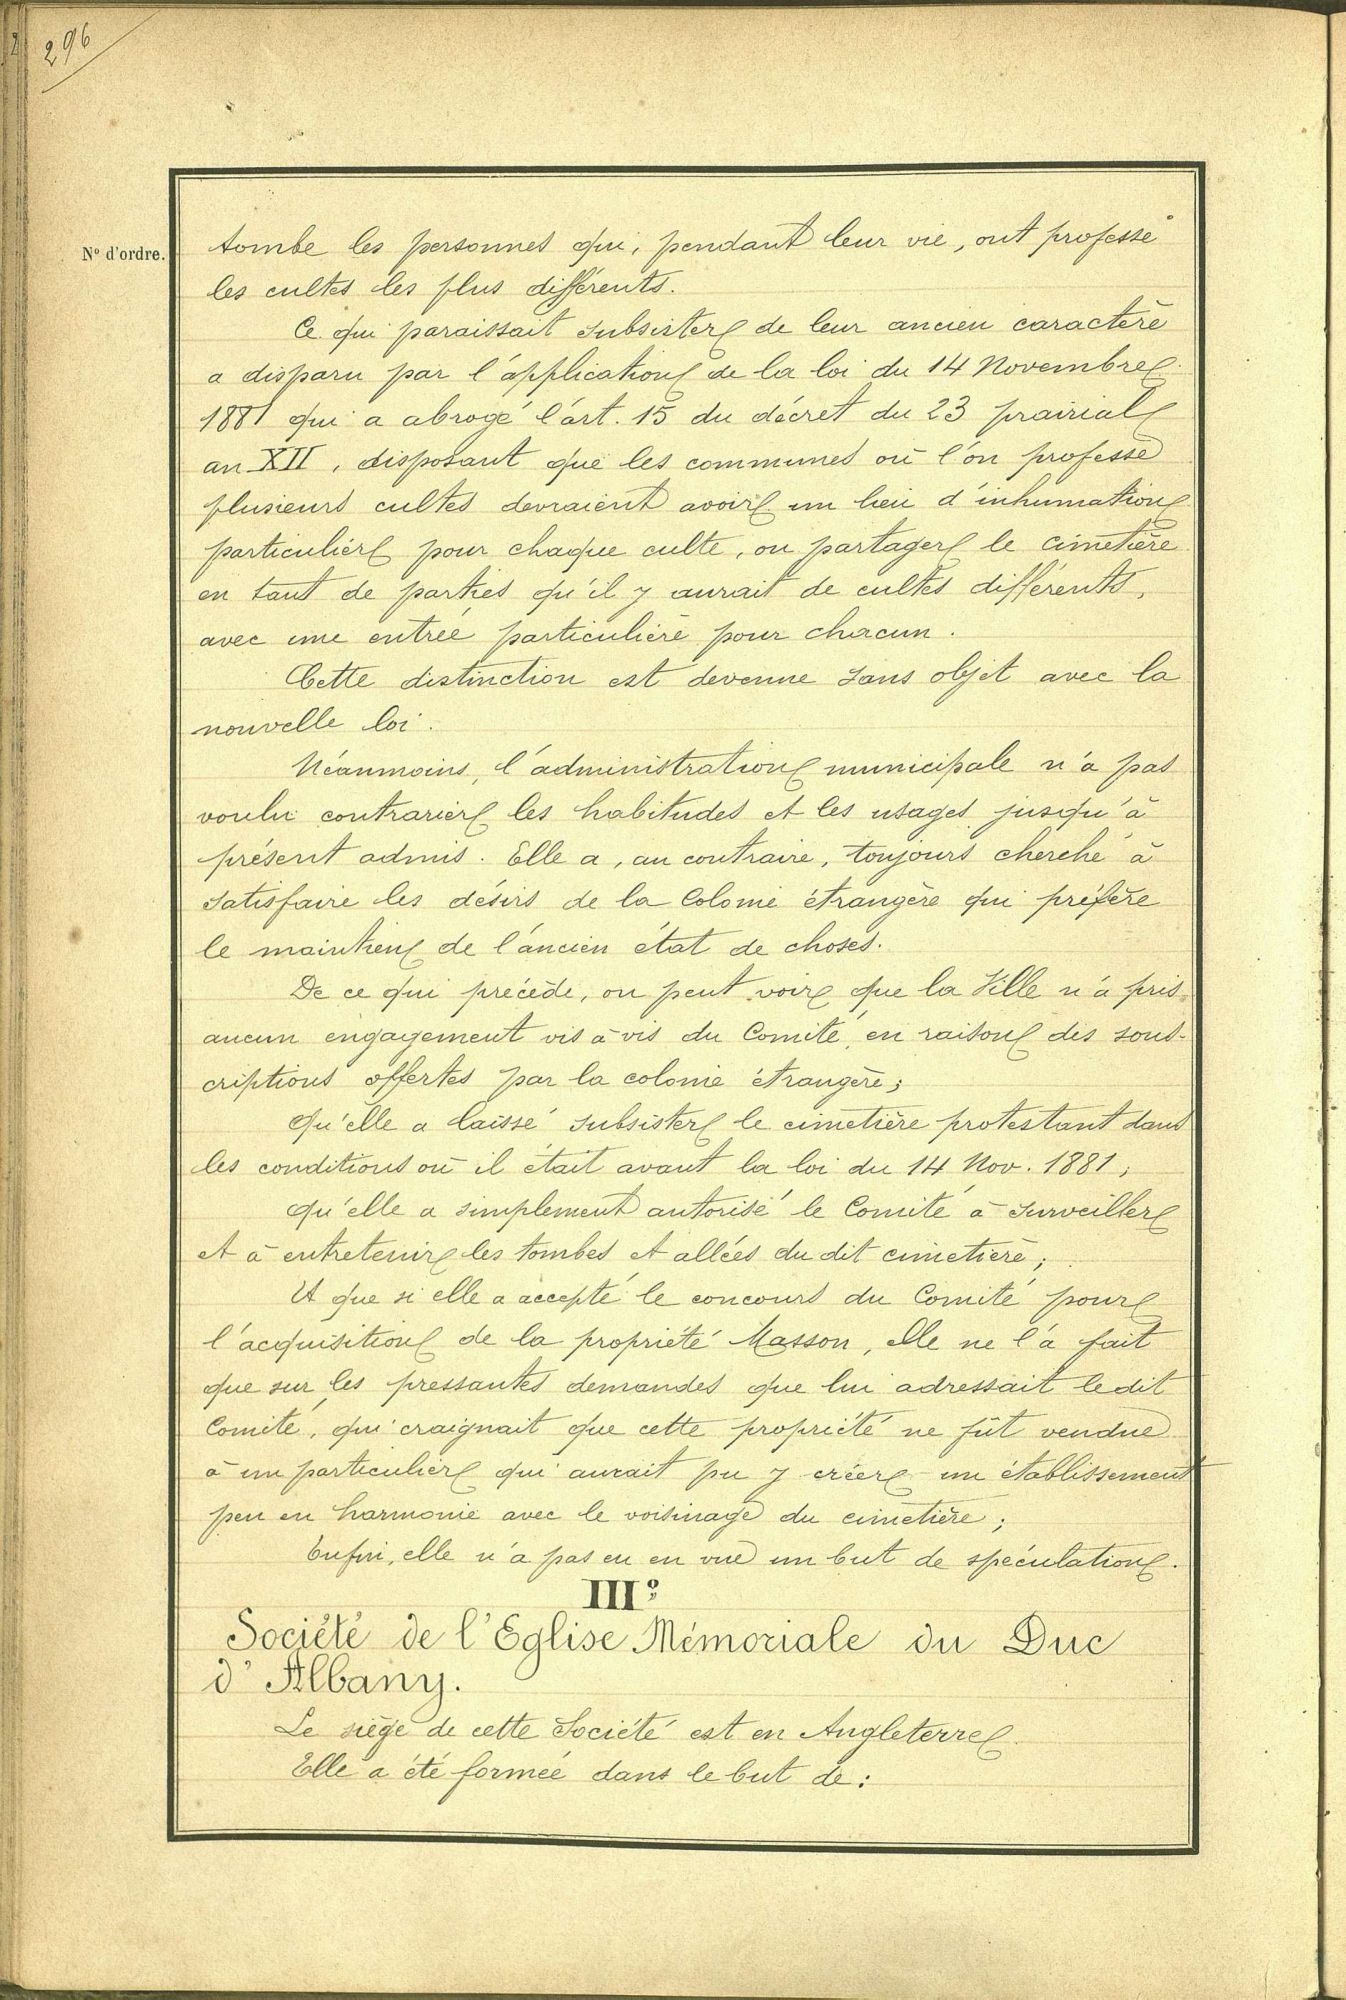 296
N° d'ordre.
tombe les personnes qui, pendant leur vie, ont professé
les cultes les plus différents.
Ce qui paraissait subsister de leur ancien caractère
a disparu par l'application de la loi du 14 Novembre
1881 qui a abrogé l'art. 15 du décret du 23 prairial
an XII, disposant que les communes où l'on professe
plusieurs cultes devraient avoir un lieu d'inhumation
particulier pour chaque culte, ou partager le cimetière
en tant de parties qu'il y aurait de cultes différents,
avec une entrée particulière pour chacun.
Cette distinction est devenue sans objet avec la
nouvelle loi.
Néanmoins, l'administration municipale n'a pas
voulu contrarier les habitudes et les usages jusqu'à
présent admis. Elle a, au contraire, toujours cherché à
satisfaire les désirs de la Colonie étrangère qui préfère
le maintien de l'ancien état de choses.
De ce qui précède, on peut voir que la Ville n'a pris
aucun engagement vis à vis du Comité, en raison des sous-
criptions offertes par la colonie étrangère;
qu'elle a laissé subsister le cimetière protestant dans
les conditions où il était avant la loi du 14 Nov. 1881;
qu'elle a simplement autorisé le Comité à surveiller
et à entretenir les tombes et allées du dit cimetière;
Et que si elle a accepté le concours du Comité pour
l'acquisition de la propriété Masson, elle ne l'a fait
que sur les pressantes demandes que lui adressait ledit
Comité, qui craignait que cette propriété ne fût vendue
à un particulier qui aurait pu y créer un établissement
peu en harmonie avec le voisinage du cimetière;
Enfin, elle n'a pas eu en vue un but de spéculation.
III°
Société de l'Eglise Mémoriale du Duc
d'Albany.
Le siège de cette Société est en Angleterre.
Elle a été formée dans le but de: